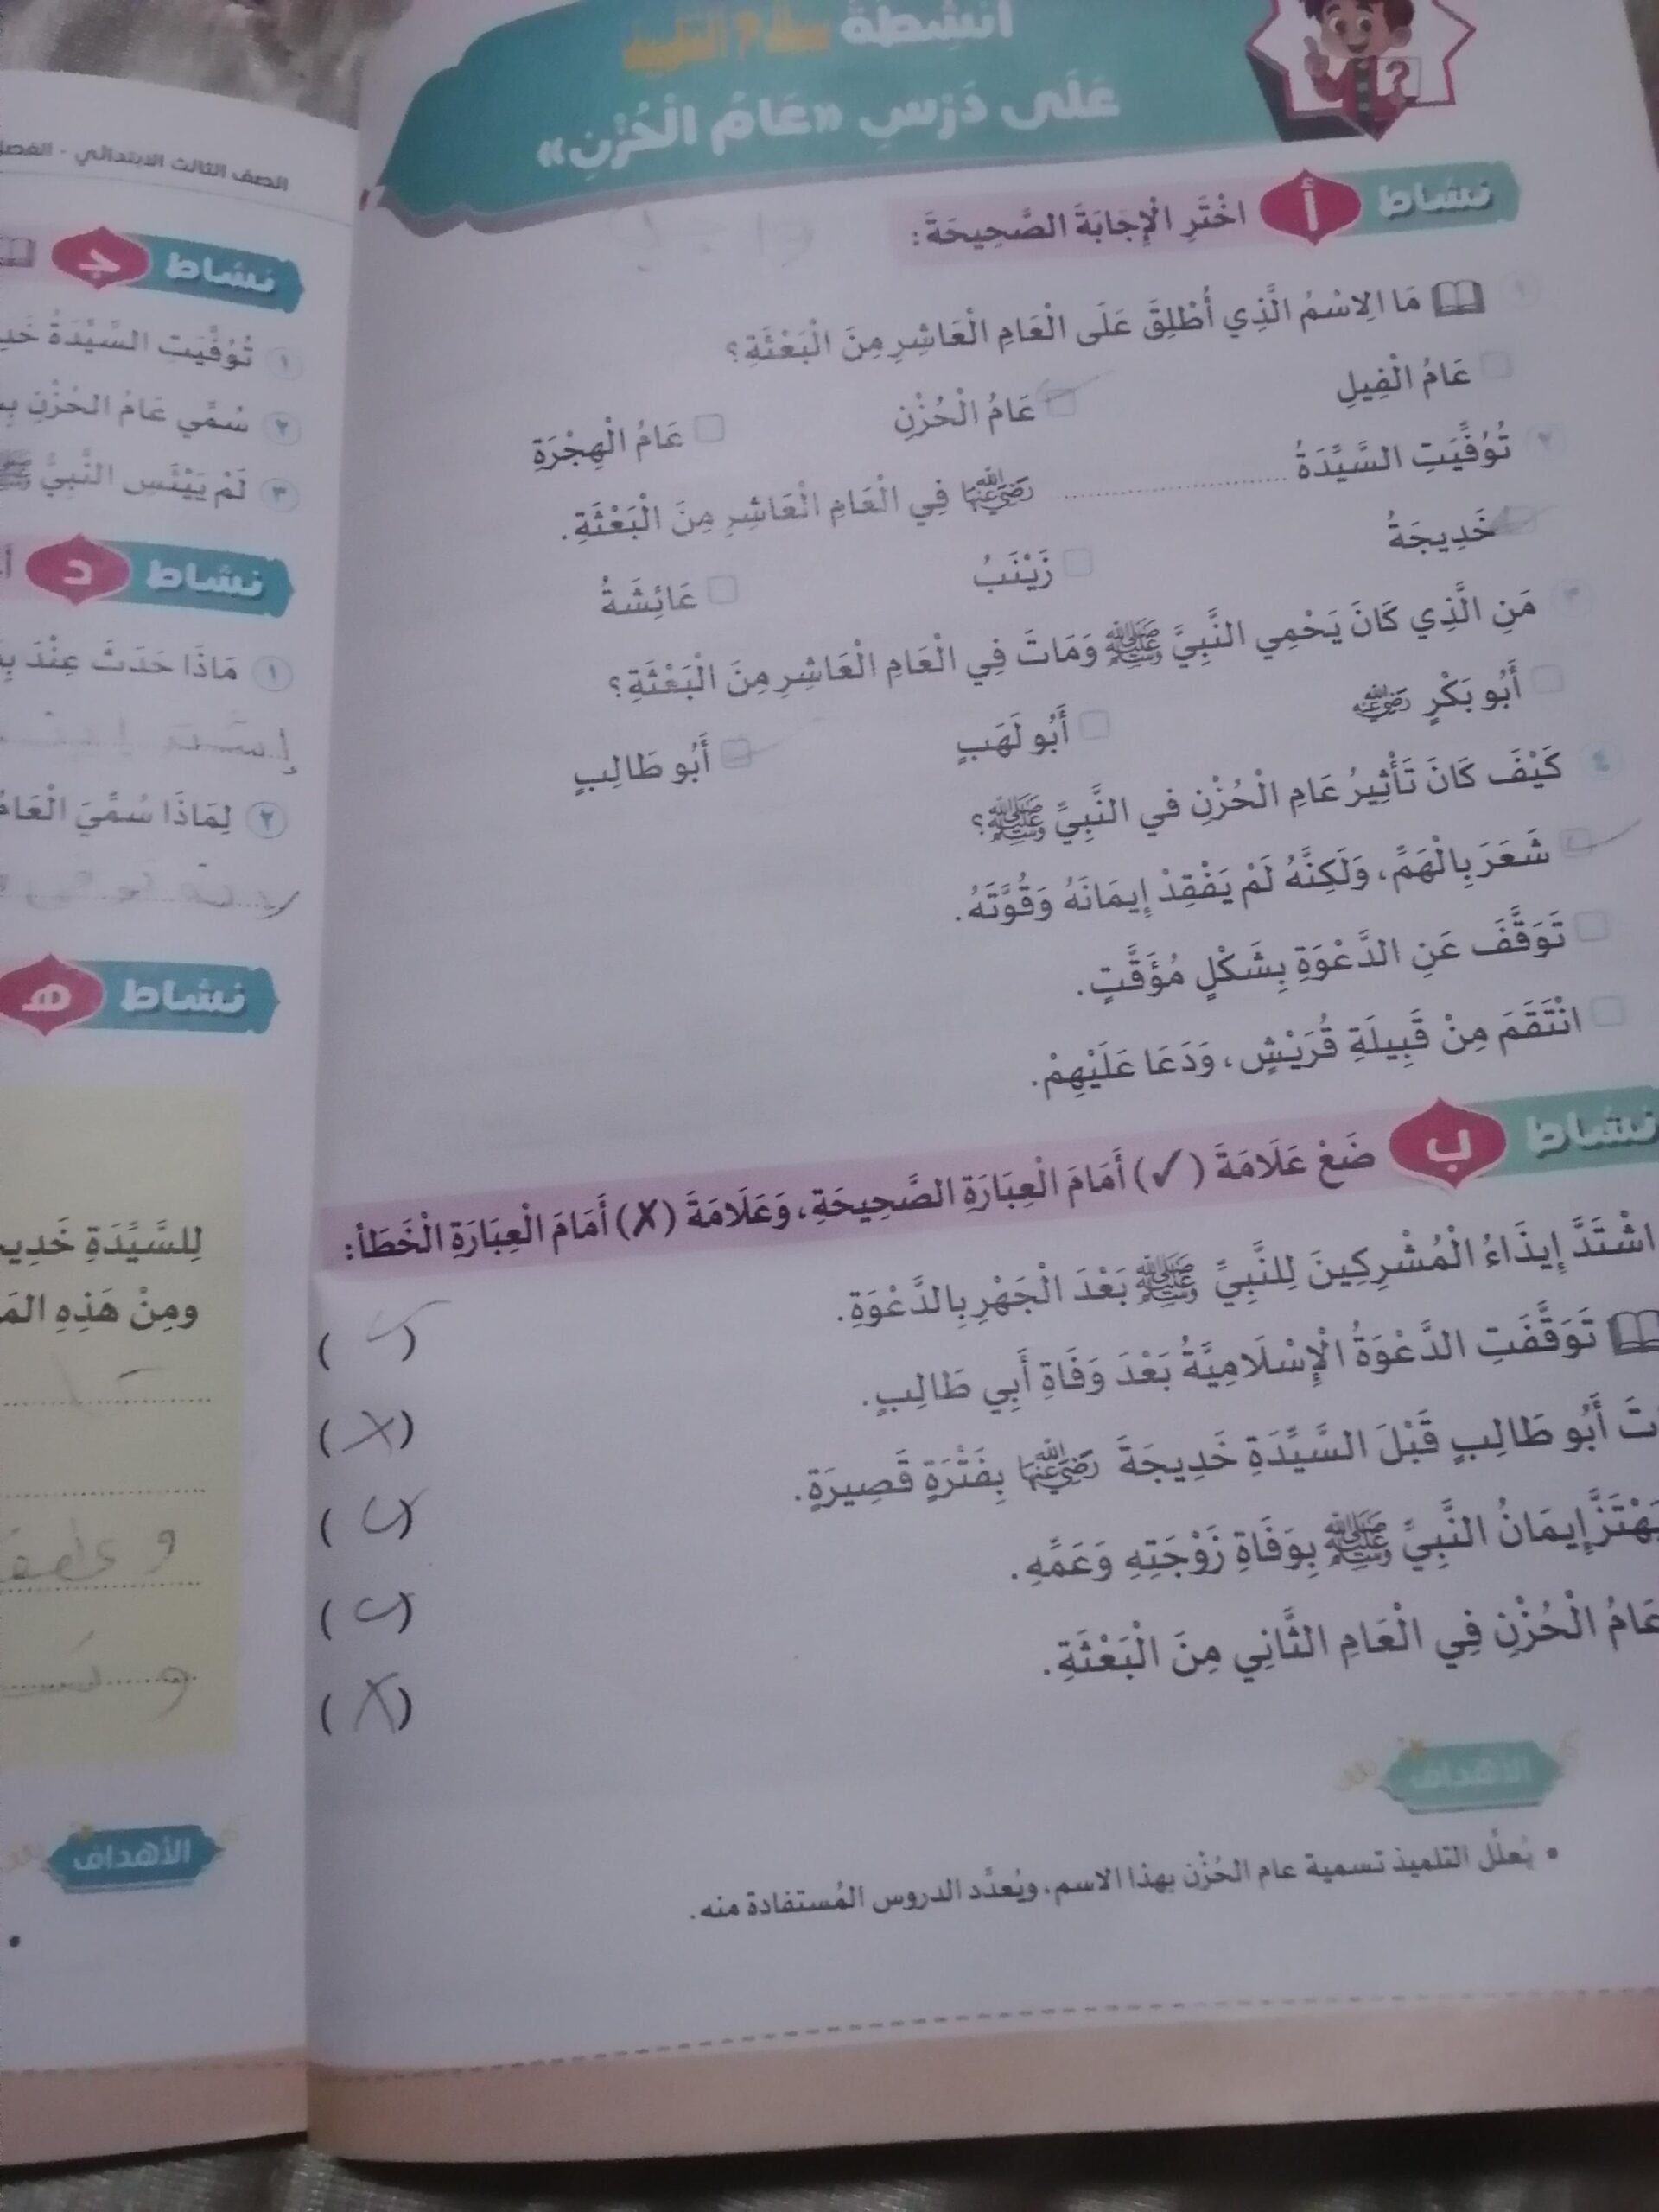 أنشطة سلاح التلميذ
عَلَى دَرْسِ «عَامُ الْحُزْنِ»
نشاط أ اخْتَرِ الْإِجَابَةَ الصَّحِيحَةَ:
١ مَا الِاسْمُ الَّذِي أُطْلِقَ عَلَى الْعَامِ الْعَاشِرِ مِنَ الْبَعْثَةِ؟
عَامُ الْفِيلِ عَامُ الْحُزْنِ عَامُ الْهِجْرَةِ
٢ تُوُفِّيَتِ السَّيِّدَةُ ........ رَضِيَ اللَّهُ عَنْهَا فِي الْعَامِ الْعَاشِرِ مِنَ الْبَعْثَةِ.
خَدِيجَةُ زَيْنَبُ عَائِشَةُ
٣ مَنِ الَّذِي كَانَ يَحْمِي النَّبِيَّ ﷺ وَمَاتَ فِي الْعَامِ الْعَاشِرِ مِنَ الْبَعْثَةِ؟
أَبُو بَكْرٍ رَضِيَ اللَّهُ عَنْهُ أَبُو لَهَبٍ أَبُو طَالِبٍ
٤ كَيْفَ كَانَ تَأْثِيرُ عَامِ الْحُزْنِ في النَّبِيِّ ﷺ؟
شَعَرَ بِالْهَمِّ، وَلَكِنَّهُ لَمْ يَفْقِدْ إِيمَانَهُ وَقُوَّتَهُ.
تَوَقَّفَ عَنِ الدَّعْوَةِ بِشَكْلٍ مُؤَقَّتٍ.
انْتَقَمَ مِنْ قَبِيلَةِ قُرَيْشٍ، وَدَعَا عَلَيْهِمْ.
نشاط ب ضَعْ عَلَامَةَ (✓) أَمَامَ الْعِبَارَةِ الصَّحِيحَةِ، وَعَلَامَةَ (✗) أَمَامَ الْعِبَارَةِ الْخَطَأ:
اشْتَدَّ إِيذَاءُ الْمُشْرِكِينَ لِلنَّبِيِّ ﷺ بَعْدَ الْجَهْرِ بِالدَّعْوَةِ. (✓)
تَوَقَّفَتِ الدَّعْوَةُ الْإِسْلَامِيَّةُ بَعْدَ وَفَاةِ أَبِي طَالِبٍ. (✗)
أَبُو طَالِبٍ قَبْلَ السَّيِّدَةِ خَدِيجَةَ رَضِيَ اللَّهُ عَنْهَا بِفَتْرَةٍ قَصِيرَةٍ. (✓)
إِيمَانُ النَّبِيِّ ﷺ بِوَفَاةِ زَوْجَتِهِ وَعَمِّهِ. (✓)
عَامُ الْحُزْنِ فِي الْعَامِ الثَّانِي مِنَ الْبَعْثَةِ. (✗)
الأهداف
• يُعلّل التلميذ تسمية عام الحُزْن بهذا الاسم، ويُعدّد الدروس المُستفادة منه.
الصف الثالث الابتدائي -
نشاط ج
١ تُوُفِّيَتِ السَّيِّدَةُ
٢ سُمِّي عَامُ الحُزْنِ
٣ لَمْ يَيْئَسِ النَّبِيُّ ﷺ
نشاط د
١ مَاذَا حَدَثَ عِنْدَ
٢ لِمَاذَا سُمِّيَ الْعَامُ
نشاط هـ
لِلسَّيِّدَةِ
ومِنْ هَذِهِ
الأهداف